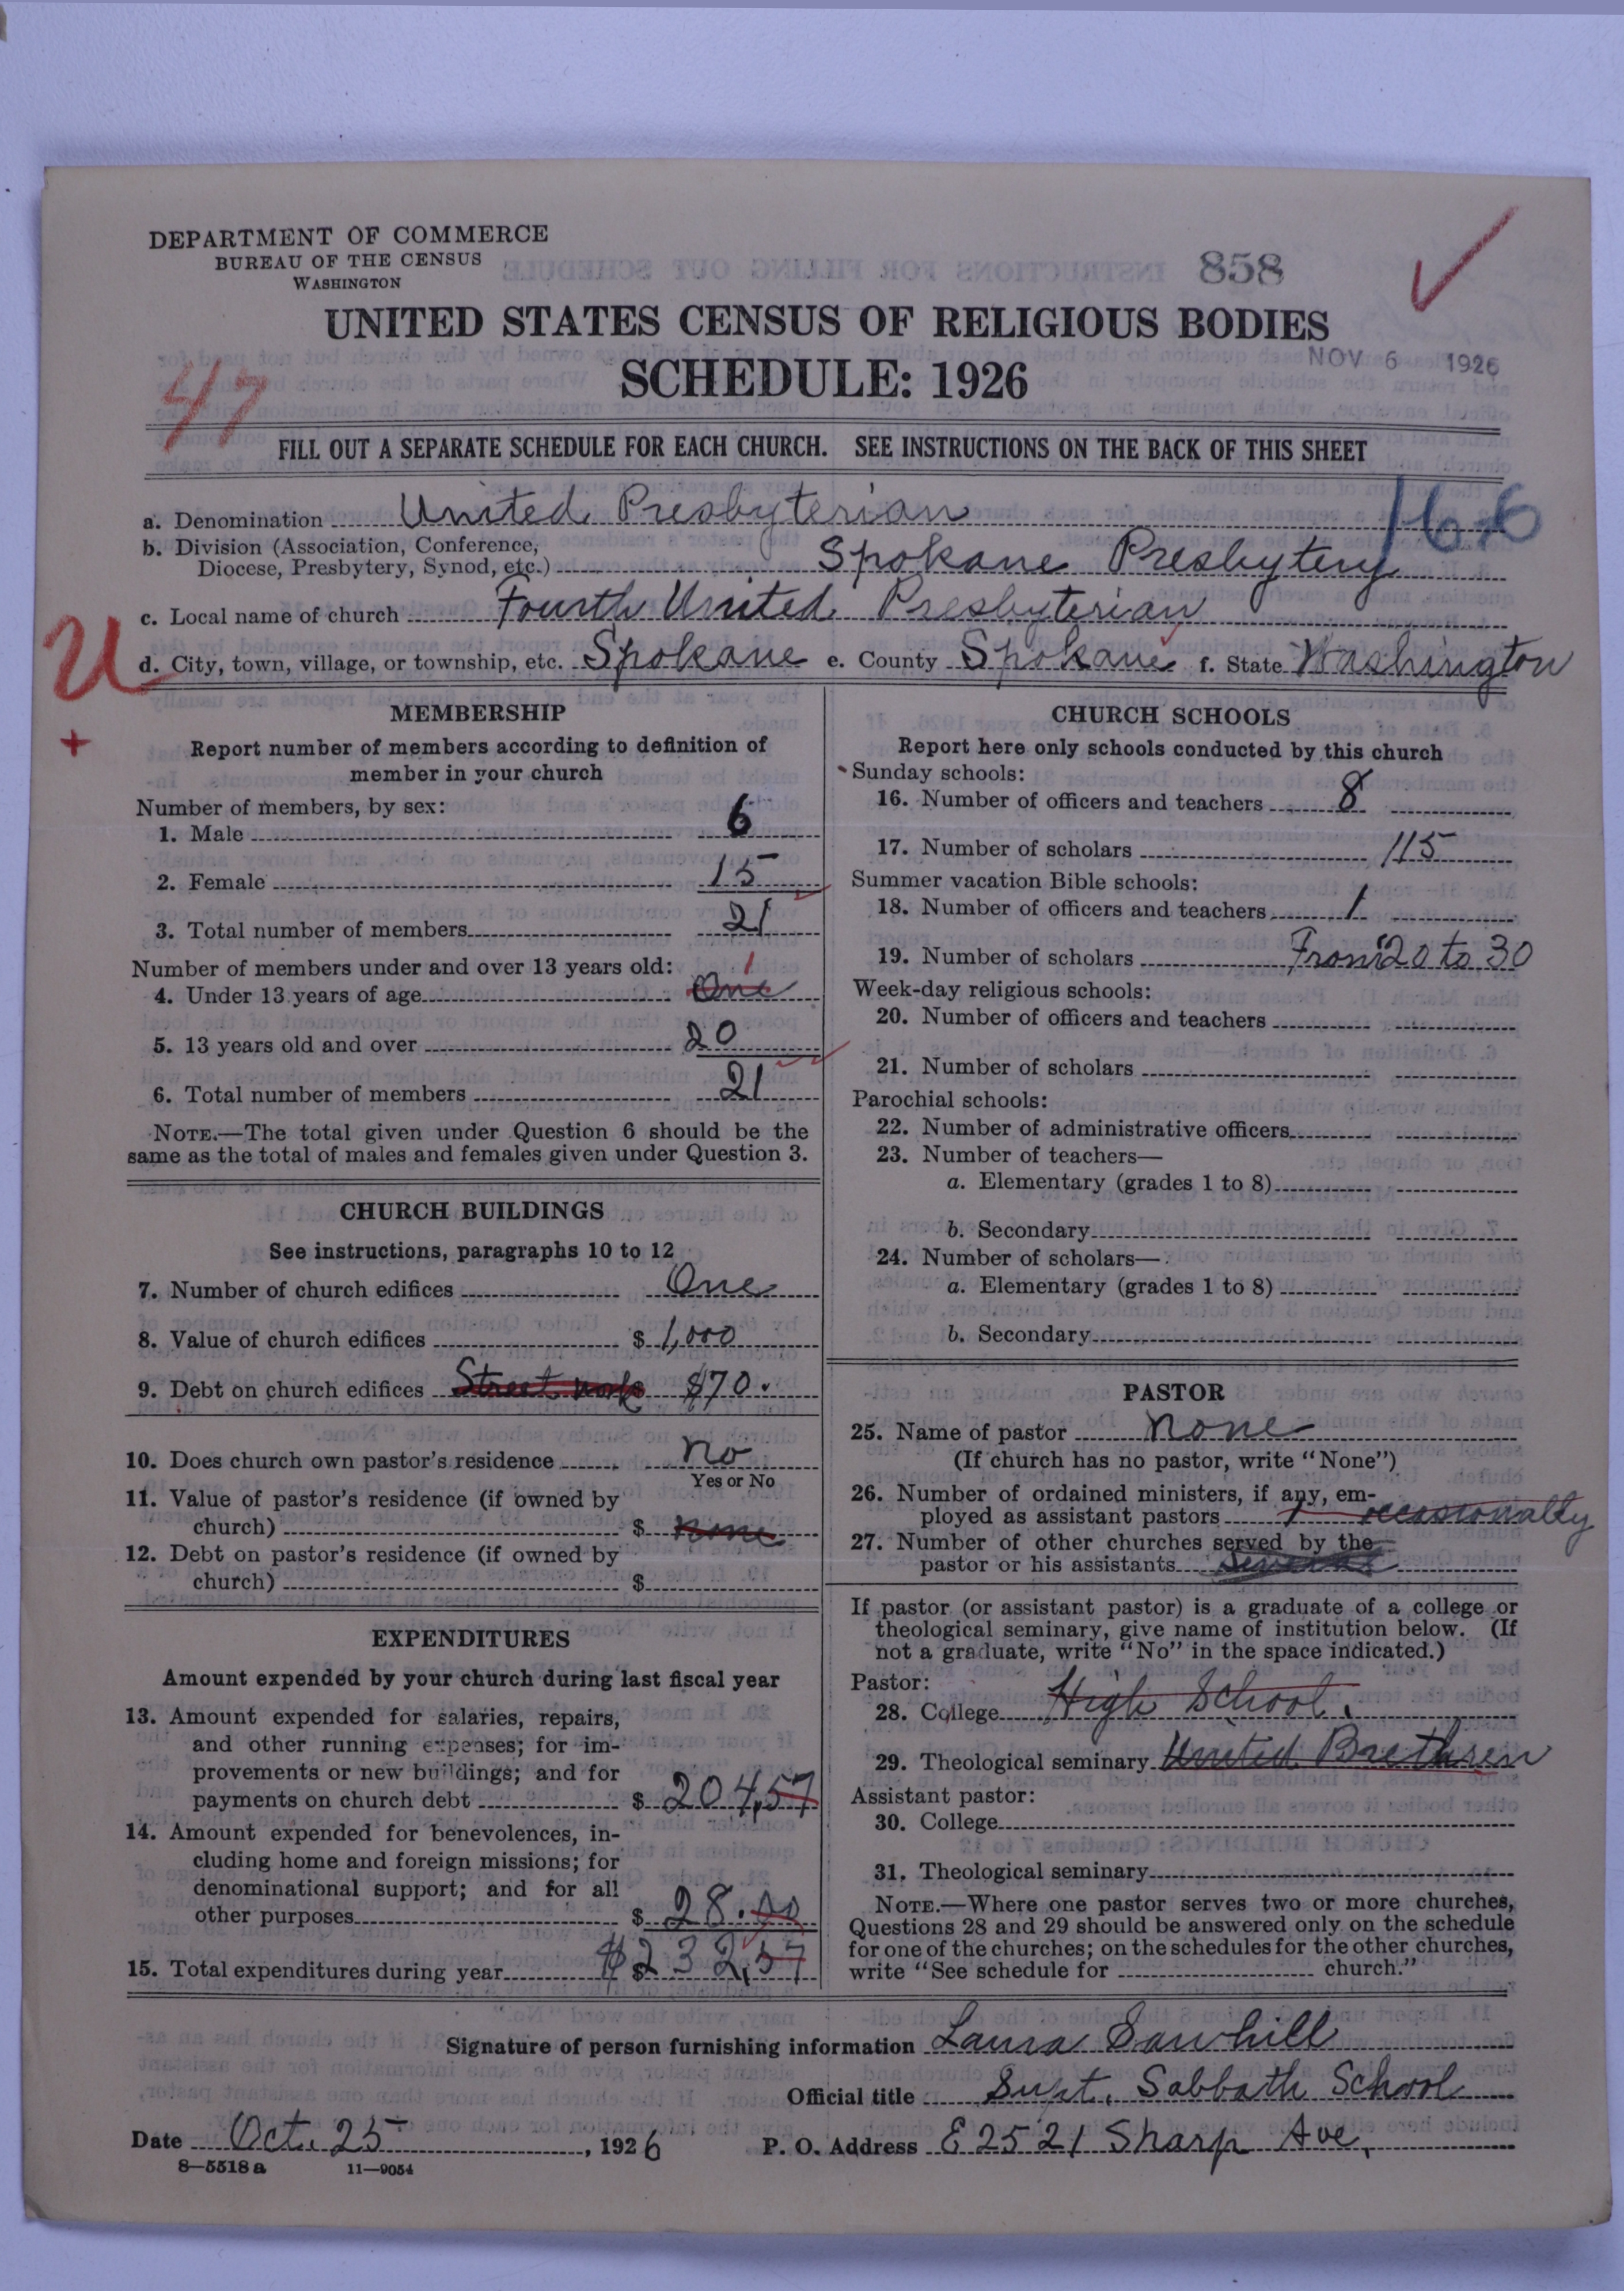 DEPARTMENT OF COMMERCE
BUREAU OF THE CENSUS
WASHINGTON
858
UNITED STATES CENSUS OF RELIGIOUS BODIES
SCHEDULE: 1926
NOV 6 1926
47
FILL OUT A SEPARATE SCHEDULE FOR EACH CHURCH. SEE INSTRUCTIONS ON THE BACK OF THIS SHEET
a. Denomination United Presbyterian
b. Division (Association, Conference, Diocese, Presbytery, Synod, etc.) Spokane Presbytery
c. Local name of church Fourth United Presbyterian
U
d. City, town, village, or township, etc. Spokane e. County Spokane f. State Washington
+
MEMBERSHIP
Report number of members according to definition of
member in your church
Number of members, by sex:
1. Male 6
2. Female 15
3. Total number of members 21
Number of members under and over 13 years old:
4. Under 13 years of age One 1
5. 13 years old and over 20
6. Total number of members 21
NOTE.—The total given under Question 6 should be the
same as the total of males and females given under Question 3.
CHURCH BUILDINGS
See instructions, paragraphs 10 to 12
7. Number of church edifices One
8. Value of church edifices $ 1,000
9. Debt on church edifices Street work $70.
10. Does church own pastor's residence No
Yes or No
11. Value of pastor's residence (if owned by
church) $ none
12. Debt on pastor's residence (if owned by
church) $
EXPENDITURES
Amount expended by your church during last fiscal year
13. Amount expended for salaries, repairs,
and other running expenses; for im-
provements or new buildings; and for
payments on church debt $ 204,57
14. Amount expended for benevolences, in-
cluding home and foreign missions; for
denominational support; and for all
other purposes $ 28.00
15. Total expenditures during year $ $232,57
CHURCH SCHOOLS
Report here only schools conducted by this church
Sunday schools:
16. Number of officers and teachers 8
17. Number of scholars 115
Summer vacation Bible schools:
18. Number of officers and teachers 1
19. Number of scholars From 20 to 30
Week-day religious schools:
20. Number of officers and teachers
21. Number of scholars
Parochial schools:
22. Number of administrative officers
23. Number of teachers—
a. Elementary (grades 1 to 8)
b. Secondary
24. Number of scholars—
a. Elementary (grades 1 to 8)
b. Secondary
PASTOR
25. Name of pastor None
(If church has no pastor, write "None")
26. Number of ordained ministers, if any, em-
ployed as assistant pastors 1 occasionally
27. Number of other churches served by the
pastor or his assistants
If pastor (or assistant pastor) is a graduate of a college or
theological seminary, give name of institution below. (If
not a graduate, write "No" in the space indicated.)
Pastor:
28. College High School.
29. Theological seminary United Brethren
Assistant pastor:
30. College
31. Theological seminary
NOTE.—Where one pastor serves two or more churches,
Questions 28 and 29 should be answered only on the schedule
for one of the churches; on the schedules for the other churches,
write "See schedule for church."
Signature of person furnishing information Laura Sawhill
Official title Supt. Sabbath School
Date Oct. 25, 1926 P. O. Address E 2521 Sharp Ave.
8—5518 a 11—9054